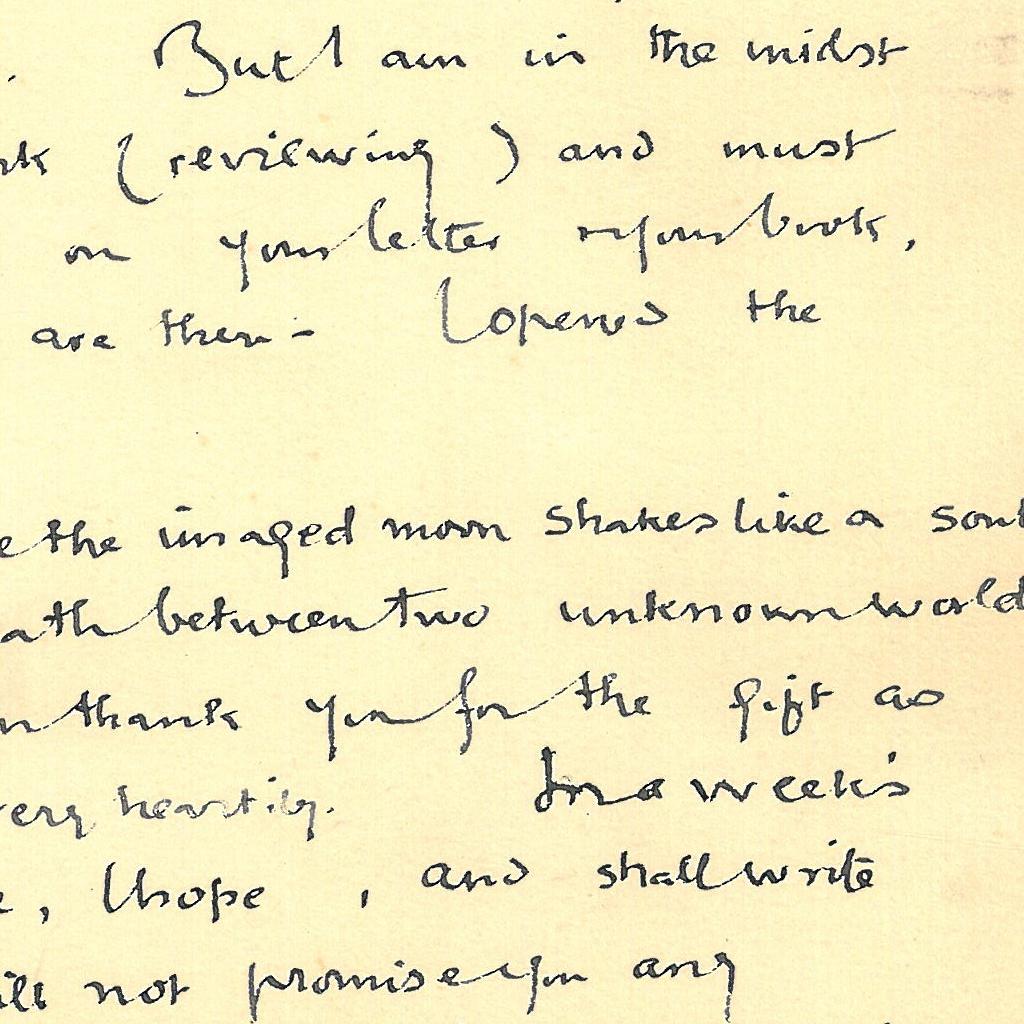 . But I am in the midst
rk (reviewing) and must
on your letter & your book,
are then - I opened the
e the unaged moon shakes like a soul
ath between two unknown world
n thank you for the gift as
very heartily. In a week's
e, I hope, and shall write
ill not promise you any